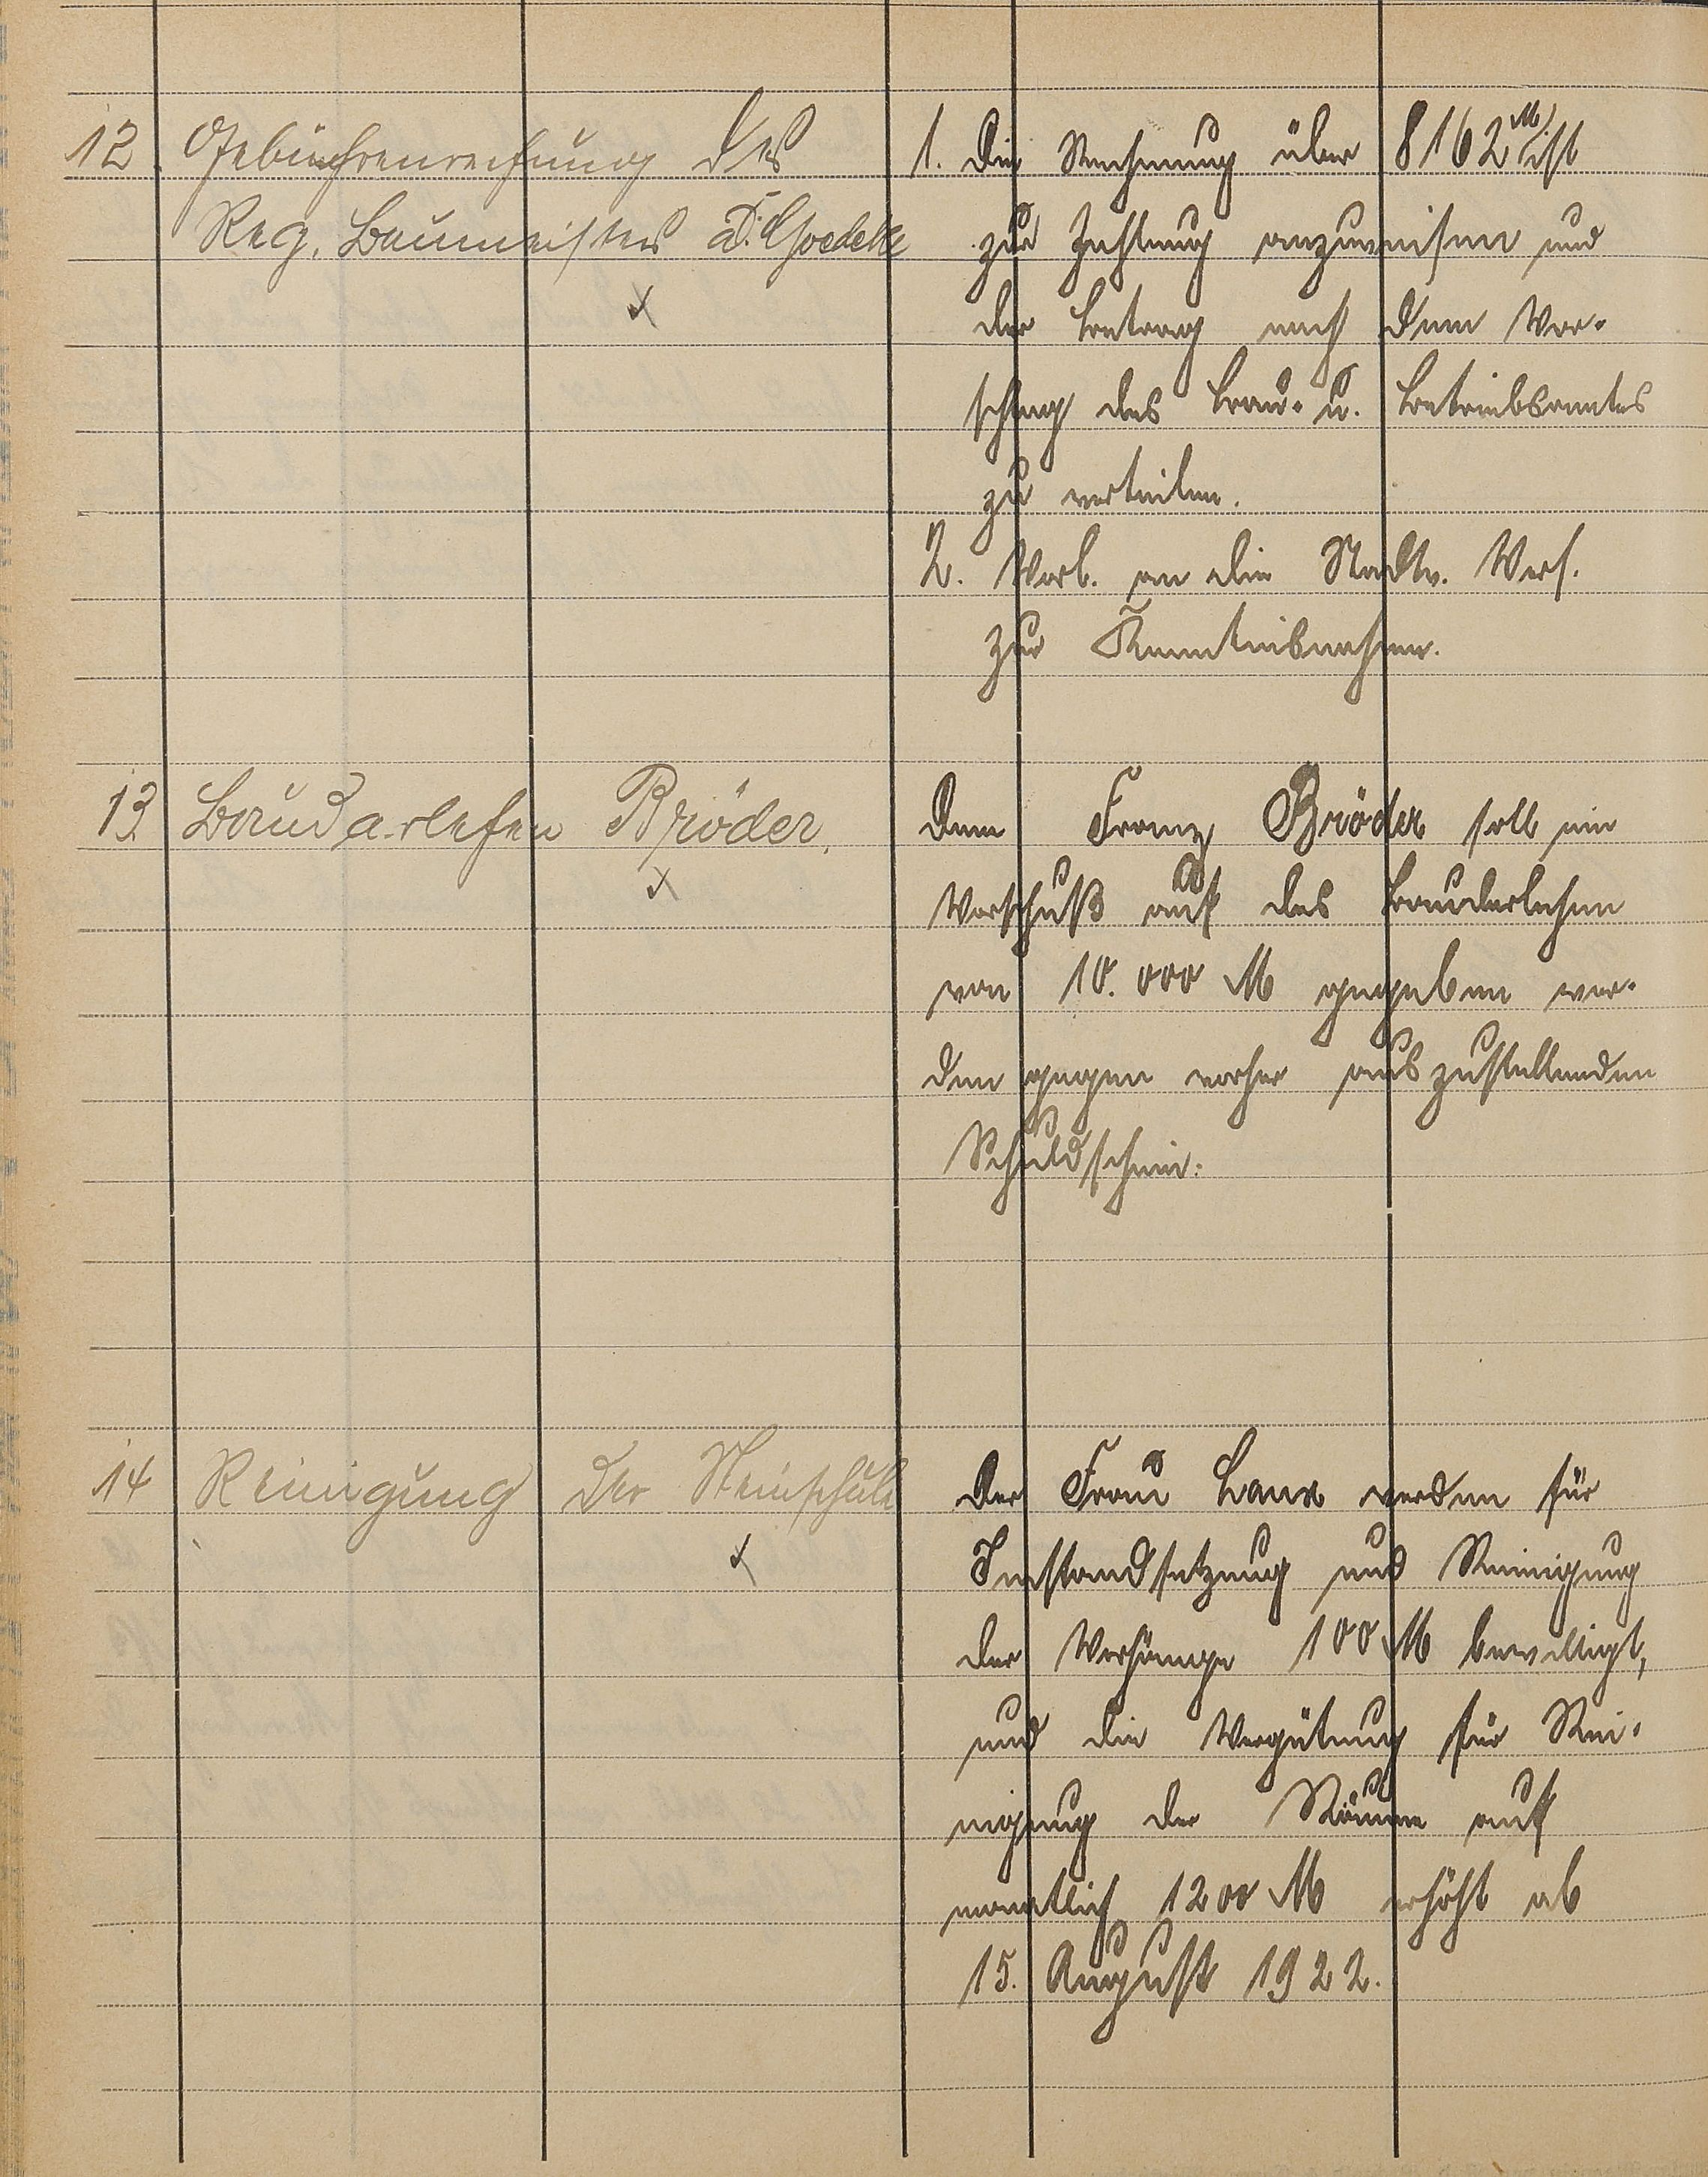 12. Gebührenrechnung des
Reg. Baumeisters a.D. Goedecke
1. Die Rechnung über 8162 M ist
zur Zahlung anzuweisen und
der Betrag nach dem Vor-
schlag des Bau- u. Betriebsamtes
zu verteilen.
2. Vorl. an die Stadtv. Vers.
zur Kenntnisnahme.
13. Baudarlehen Bröder.
Dem Franz Bröder soll ein
Vorschuß auf das Baudarlehen
von 10.000 M gegeben wer-
den gegen vorher auszustellenden
Schuldschein.
14 Reinigung der Steinschule
Der Frau Laux werden für
Instandsetzung und Reinigung
der Vorhänge 100 M bewilligt,
und die Vergütung für Rei-
nigung der Räume auf
monatlich 1200 M erhöht ab
15. August 1922.